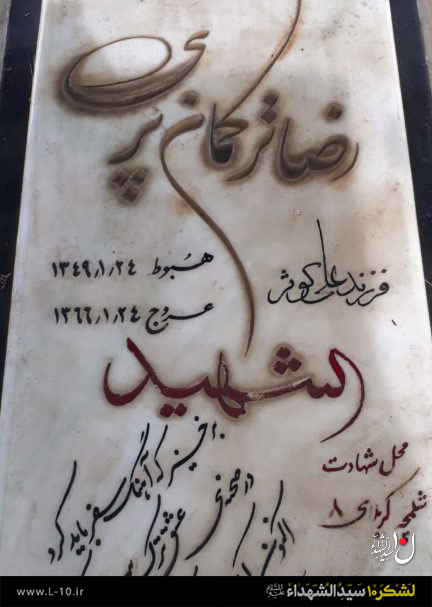 رضا ترکمان پری
فرزند علی کوثر
هبوط ۱۳۴۹/۱/۲۴
عروج ۱۳۶۶/۱/۲۴
الشهید
محل شهادت
شلمچه کربلای ۸
برخیز که آهنگ سفر باید کرد
در صحنه‌ی عشق ترک
اکنون
لشکر۱۰ سیدالشهداء
www.L-10.ir